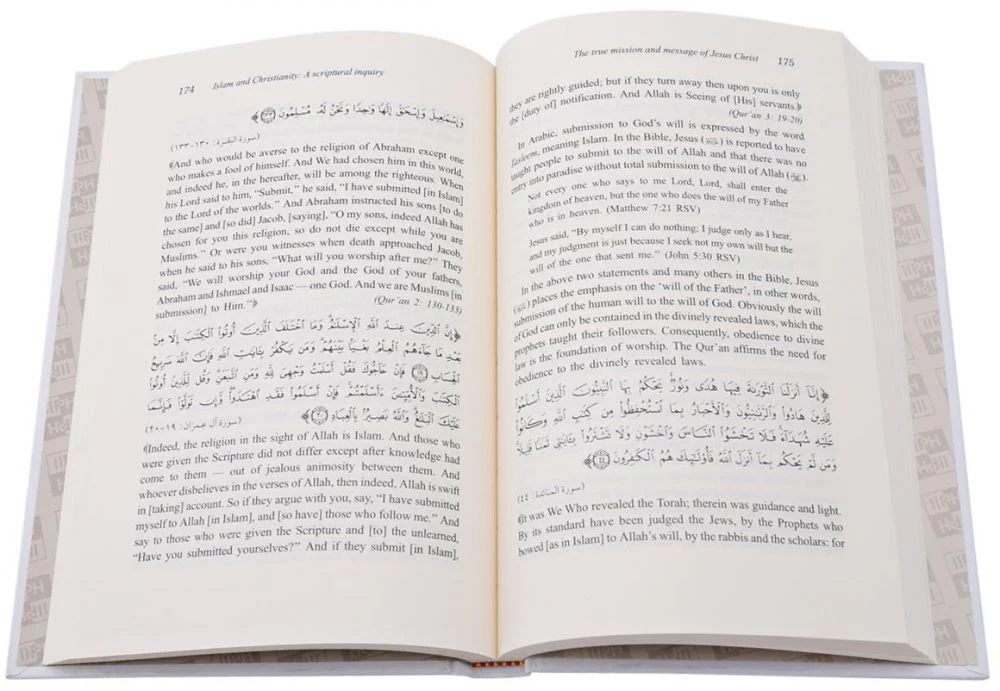 174 Islam and Christianity: A scriptural inquiry
وَإِسْمَٰعِيلَ وَإِسْحَٰقَ إِلَٰهًا وَٰحِدًا وَنَحْنُ لَهُۥ مُسْلِمُونَ ﴿١٣٣﴾
(سورة البقرة: ١٣٠-١٣٣)
﴾And who would be averse to the religion of Abraham except one
who makes a fool of himself. And We had chosen him in this world,
and indeed he, in the hereafter, will be among the righteous. When
his Lord said to him, “Submit,” he said, “I have submitted [in Islam]
to the Lord of the worlds.” And Abraham instructed his sons [to do
the same] and [so did] Jacob, [saying], “O my sons, indeed Allah has
chosen for you this religion, so do not die except while you are
Muslims.” Or were you witnesses when death approached Jacob,
when he said to his sons, “What will you worship after me?” They
said, “We will worship your God and the God of your fathers,
Abraham and Ishmael and Isaac — one God. And we are Muslims [in
submission] to Him.”﴿ (Qur’an 2: 130-133)
﴿إِنَّ ٱلدِّينَ عِندَ ٱللَّهِ ٱلْإِسْلَٰمُ وَمَا ٱخْتَلَفَ ٱلَّذِينَ أُوتُوا۟ ٱلْكِتَٰبَ إِلَّا مِنۢ
بَعْدِ مَا جَآءَهُمُ ٱلْعِلْمُ بَغْيًۢا بَيْنَهُمْ وَمَن يَكْفُرْ بِـَٔايَٰتِ ٱللَّهِ فَإِنَّ ٱللَّهَ سَرِيعُ
ٱلْحِسَابِ ١٩ فَإِنْ حَآجُّوكَ فَقُلْ أَسْلَمْتُ وَجْهِىَ لِلَّهِ وَمَنِ ٱتَّبَعَنِ وَقُل لِّلَّذِينَ أُوتُوا۟
ٱلْكِتَٰبَ وَٱلْأُمِّيِّۦنَ ءَأَسْلَمْتُمْ فَإِنْ أَسْلَمُوا۟ فَقَدِ ٱهْتَدَوا۟ وَّإِن تَوَلَّوْا۟ فَإِنَّمَا
عَلَيْكَ ٱلْبَلَٰغُ وَٱللَّهُ بَصِيرٌۢ بِٱلْعِبَادِ ٢٠﴾
(سورة آل عمران: ١٩-٢٠)
﴾Indeed, the religion in the sight of Allah is Islam. And those who
were given the Scripture did not differ except after knowledge had
come to them — out of jealous animosity between them. And
whoever disbelieves in the verses of Allah, then indeed, Allah is swift
in [taking] account. So if they argue with you, say, “I have submitted
myself to Allah [in Islam], and [so have] those who follow me.” And
say to those who were given the Scripture and [to] the unlearned,
“Have you submitted yourselves?” And if they submit [in Islam],
The true mission and message of Jesus Christ 175
they are rightly guided; but if they turn away then upon you is only
the [duty of] notification. And Allah is Seeing of [His] servants.﴿
(Qur’an 3: 19-20)
In Arabic, submission to God’s will is expressed by the word
Tasleem, meaning Islam. In the Bible, Jesus () is reported to have
taught people to submit to the will of Allah and that there was no
entry into paradise without total submission to the will of Allah ().
Not every one who says to me Lord, Lord, shall enter the
kingdom of heaven, but the one who does the will of my Father
who is in heaven. (Matthew 7:21 RSV)
Jesus said, “By myself I can do nothing; I judge only as I hear,
and my judgment is just because I seek not my own will but the
will of the one that sent me.” (John 5:30 RSV)
In the above two statements and many others in the Bible, Jesus
() places the emphasis on the ‘will of the Father’, in other words,
submission of the human will to the will of God. Obviously the will
of God can only be contained in the divinely revealed laws, which the
prophets taught their followers. Consequently, obedience to divine
law is the foundation of worship. The Qur’an affirms the need for
obedience to the divinely revealed laws.
﴿إِنَّآ أَنزَلْنَا ٱلتَّوْرَىٰةَ فِيهَا هُدًى وَنُورٌ يَحْكُمُ بِهَا ٱلنَّبِيُّونَ ٱلَّذِينَ أَسْلَمُوا۟
لِلَّذِينَ هَادُوا۟ وَٱلرَّبَّٰنِيُّونَ وَٱلْأَحْبَارُ بِمَا ٱسْتُحْفِظُوا۟ مِن كِتَٰبِ ٱللَّهِ وَكَانُوا۟
عَلَيْهِ شُهَدَآءَ فَلَا تَخْشَوُا۟ ٱلنَّاسَ وَٱخْشَوْنِ وَلَا تَشْتَرُوا۟ بِـَٔايَٰتِى ثَمَنًا قَلِيلًا
وَمَن لَّمْ يَحْكُم بِمَآ أَنزَلَ ٱللَّهُ فَأُو۟لَٰٓئِكَ هُمُ ٱلْكَٰفِرُونَ ٤٤﴾
(سورة المائدة: ٤٤)
﴾It was We Who revealed the Torah; therein was guidance and light.
By its standard have been judged the Jews, by the Prophets who
bowed [as in Islam] to Allah’s will, by the rabbis and the scholars: for